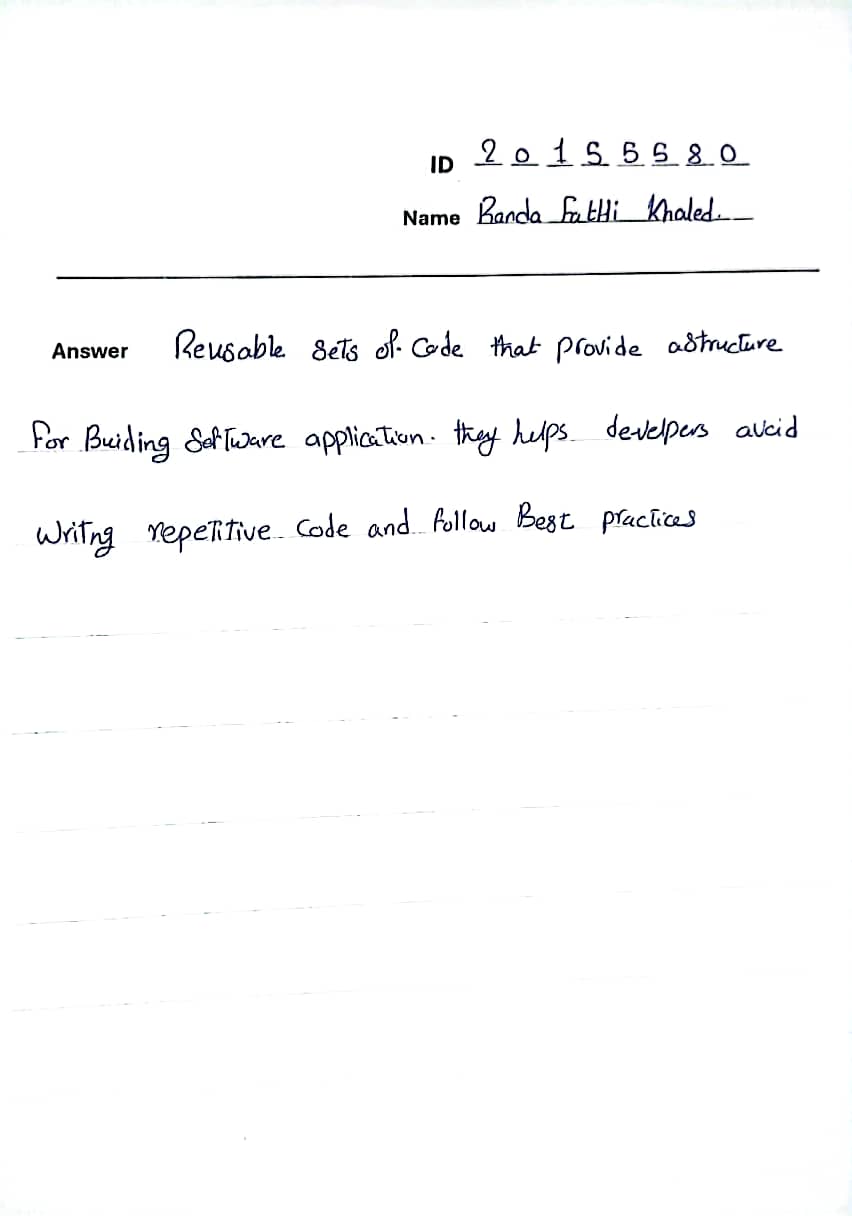 ID 20155580
Name Randa Fathi Khaled.
Answer Reusable sets of code that provide astructure
for Buiding software application. they helps develpers avoid
writng repetitive code and follow Best practices